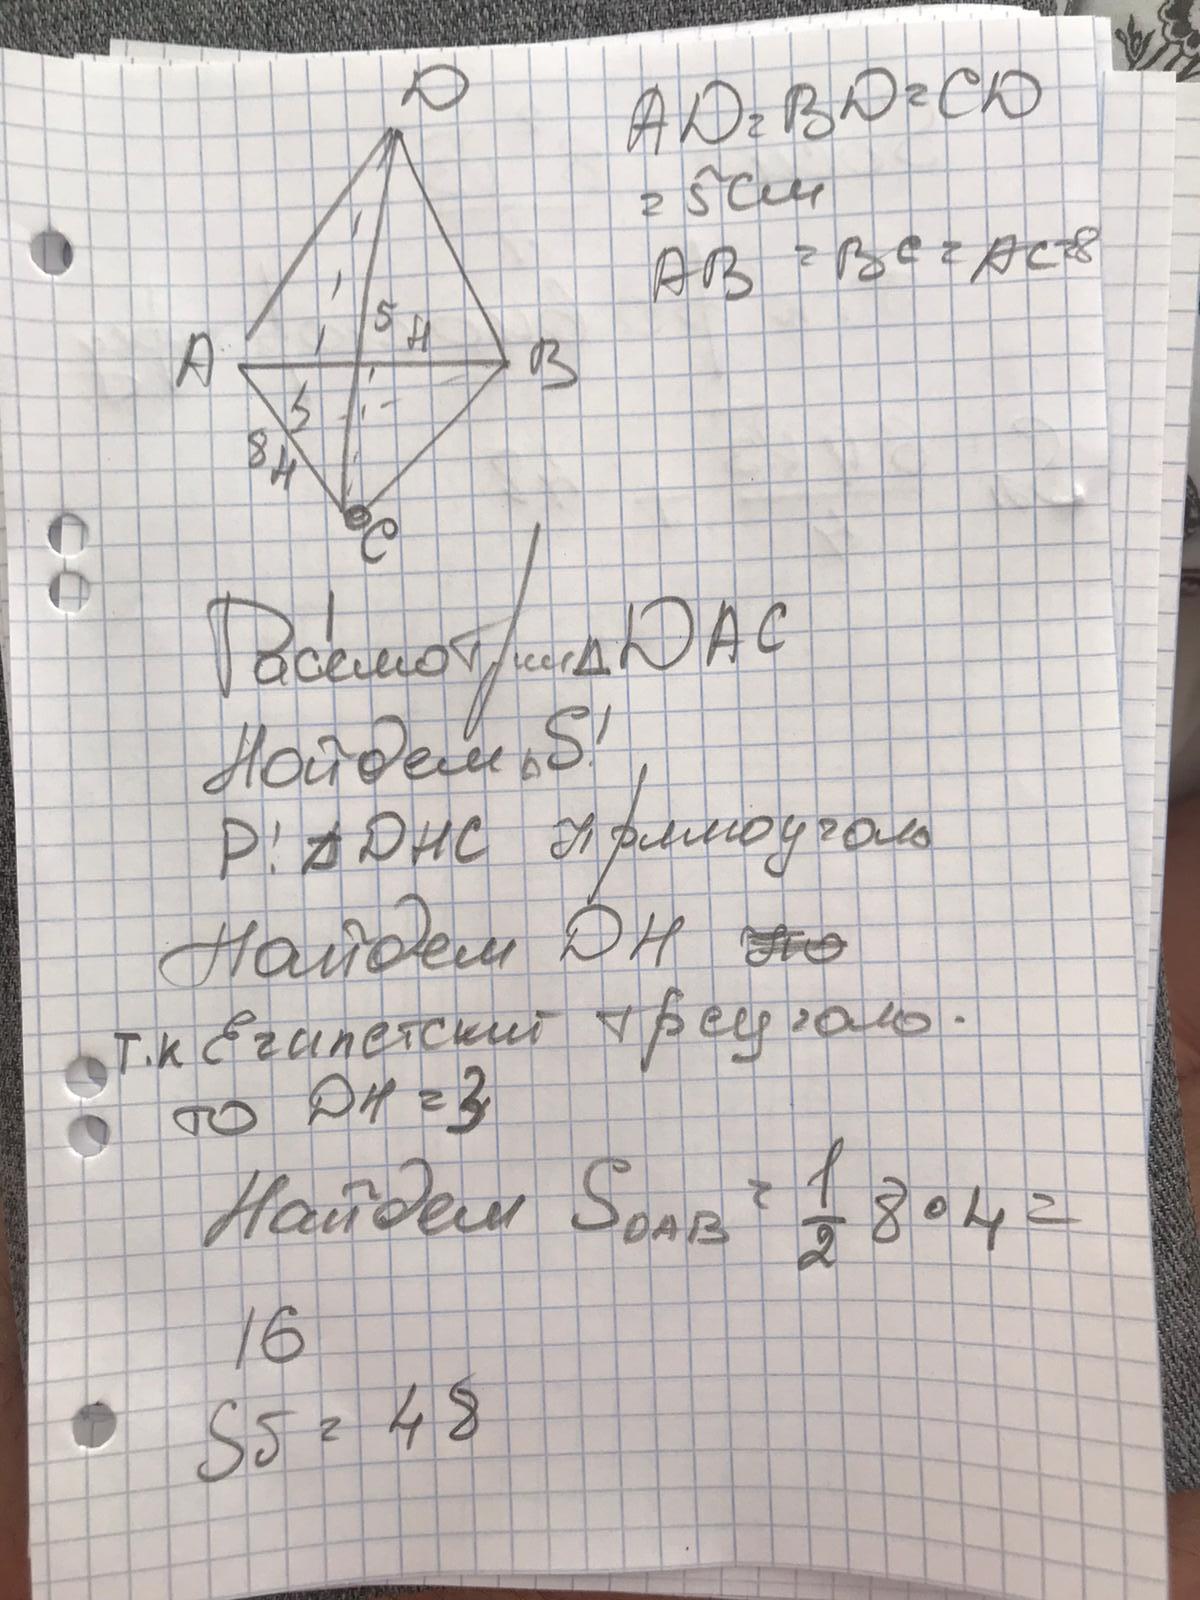 D
AD=BD=CD
=5см
AB=BC=AC=8
5
H
A
B
5
8
H
C
Рассмотрим ΔDAC
Найдем S!
P! ΔDHC прямоуголь
Найдем DH
т.к Египетский треуголь.
то DH=3
Найдем SDAB = 1/2 8·4=
16
Sб = 48